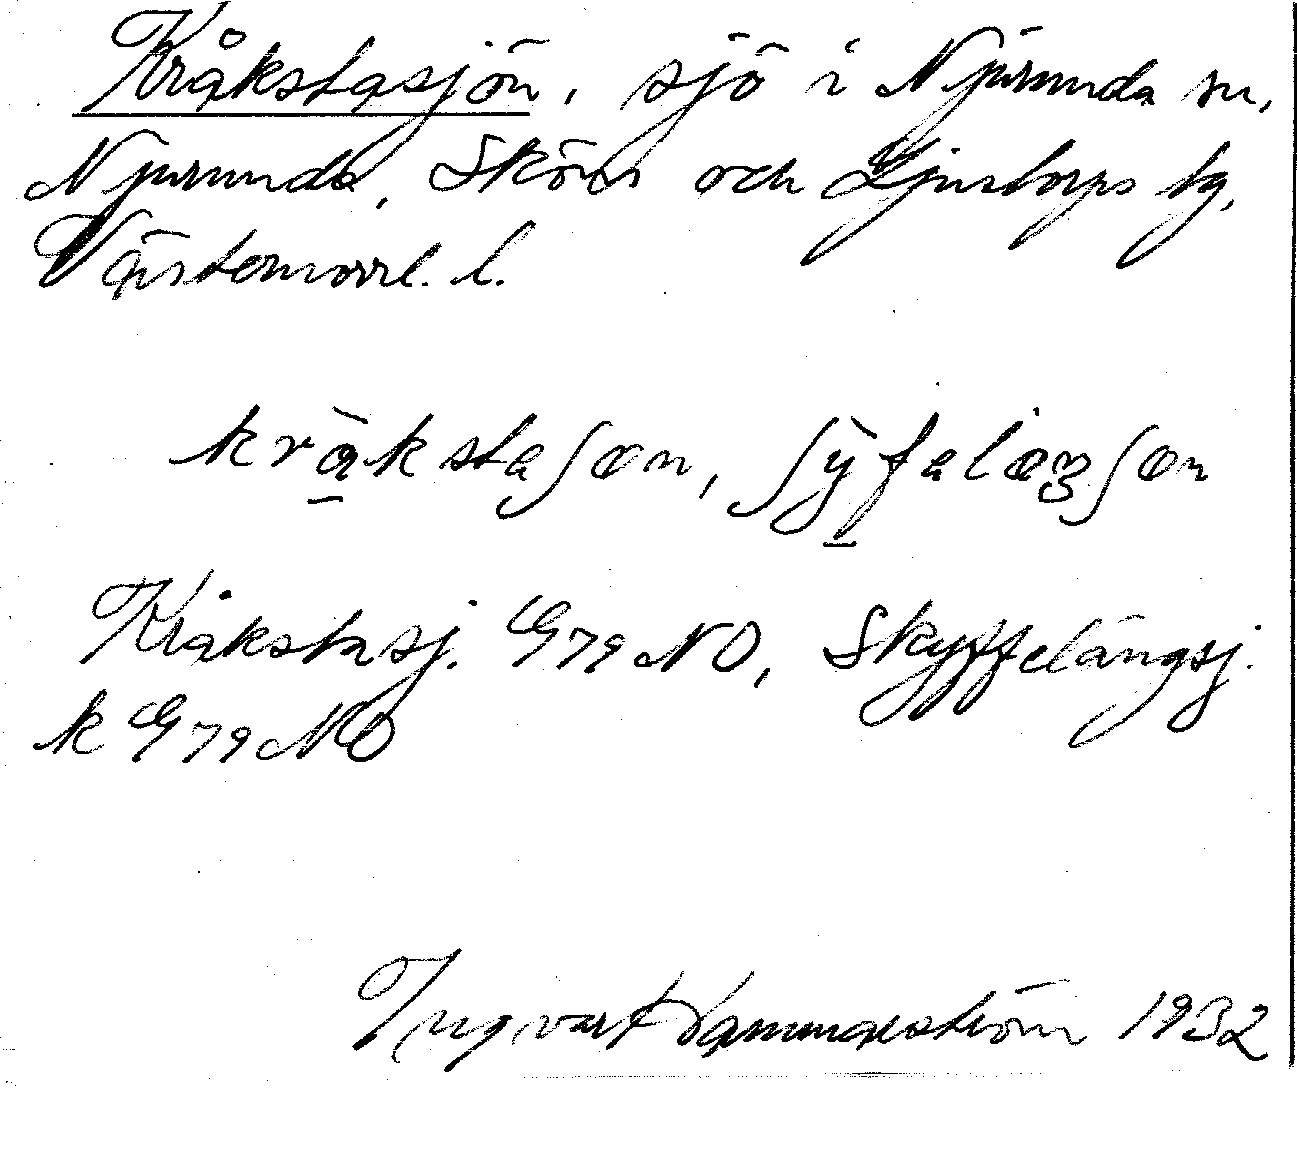 Kråkstasjön, sjö i Njurunda sn,
Njurunda, Sköns och Ljustorps tg,
Västernorrl. l.
kråkstaʃœn, ʃỳfəlœŋʃœn
Kråkstasj. G79NO, Skyffelängsj.
k G79NO
Ingvart Hammarström 1932